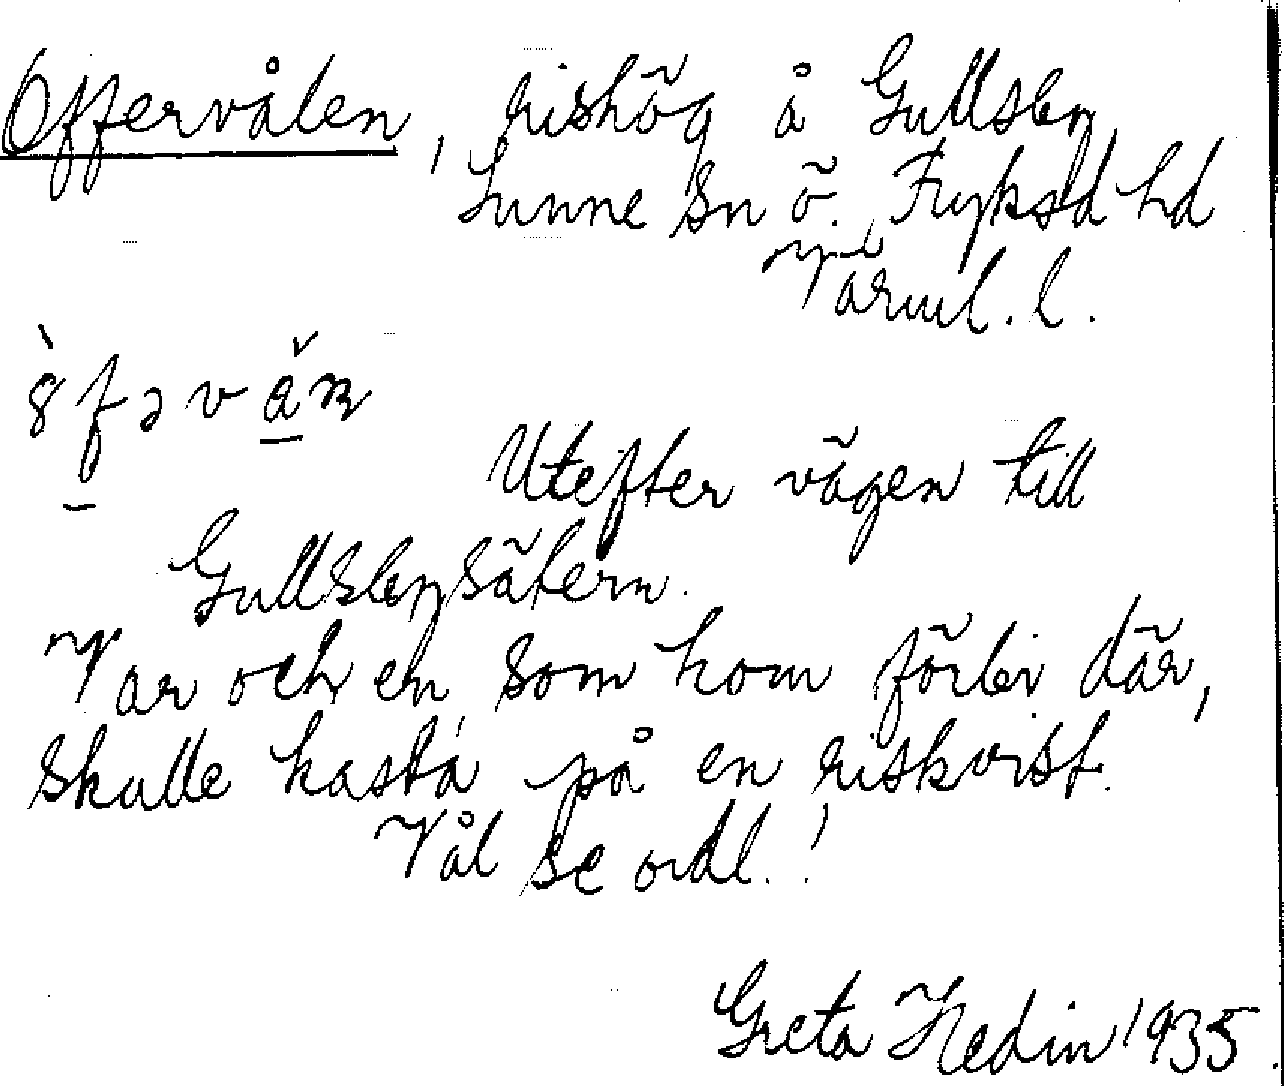 Offervålen, rishög å Gullsby,
Sunne sn ö. Fryksd hd
Värml. l.
Utefter vägen till
Gullsbysätern.
Var och en, som kom förbi där,
skulle kasta på en riskvist.
Vål se ordl.!
Greta Hedin 1935